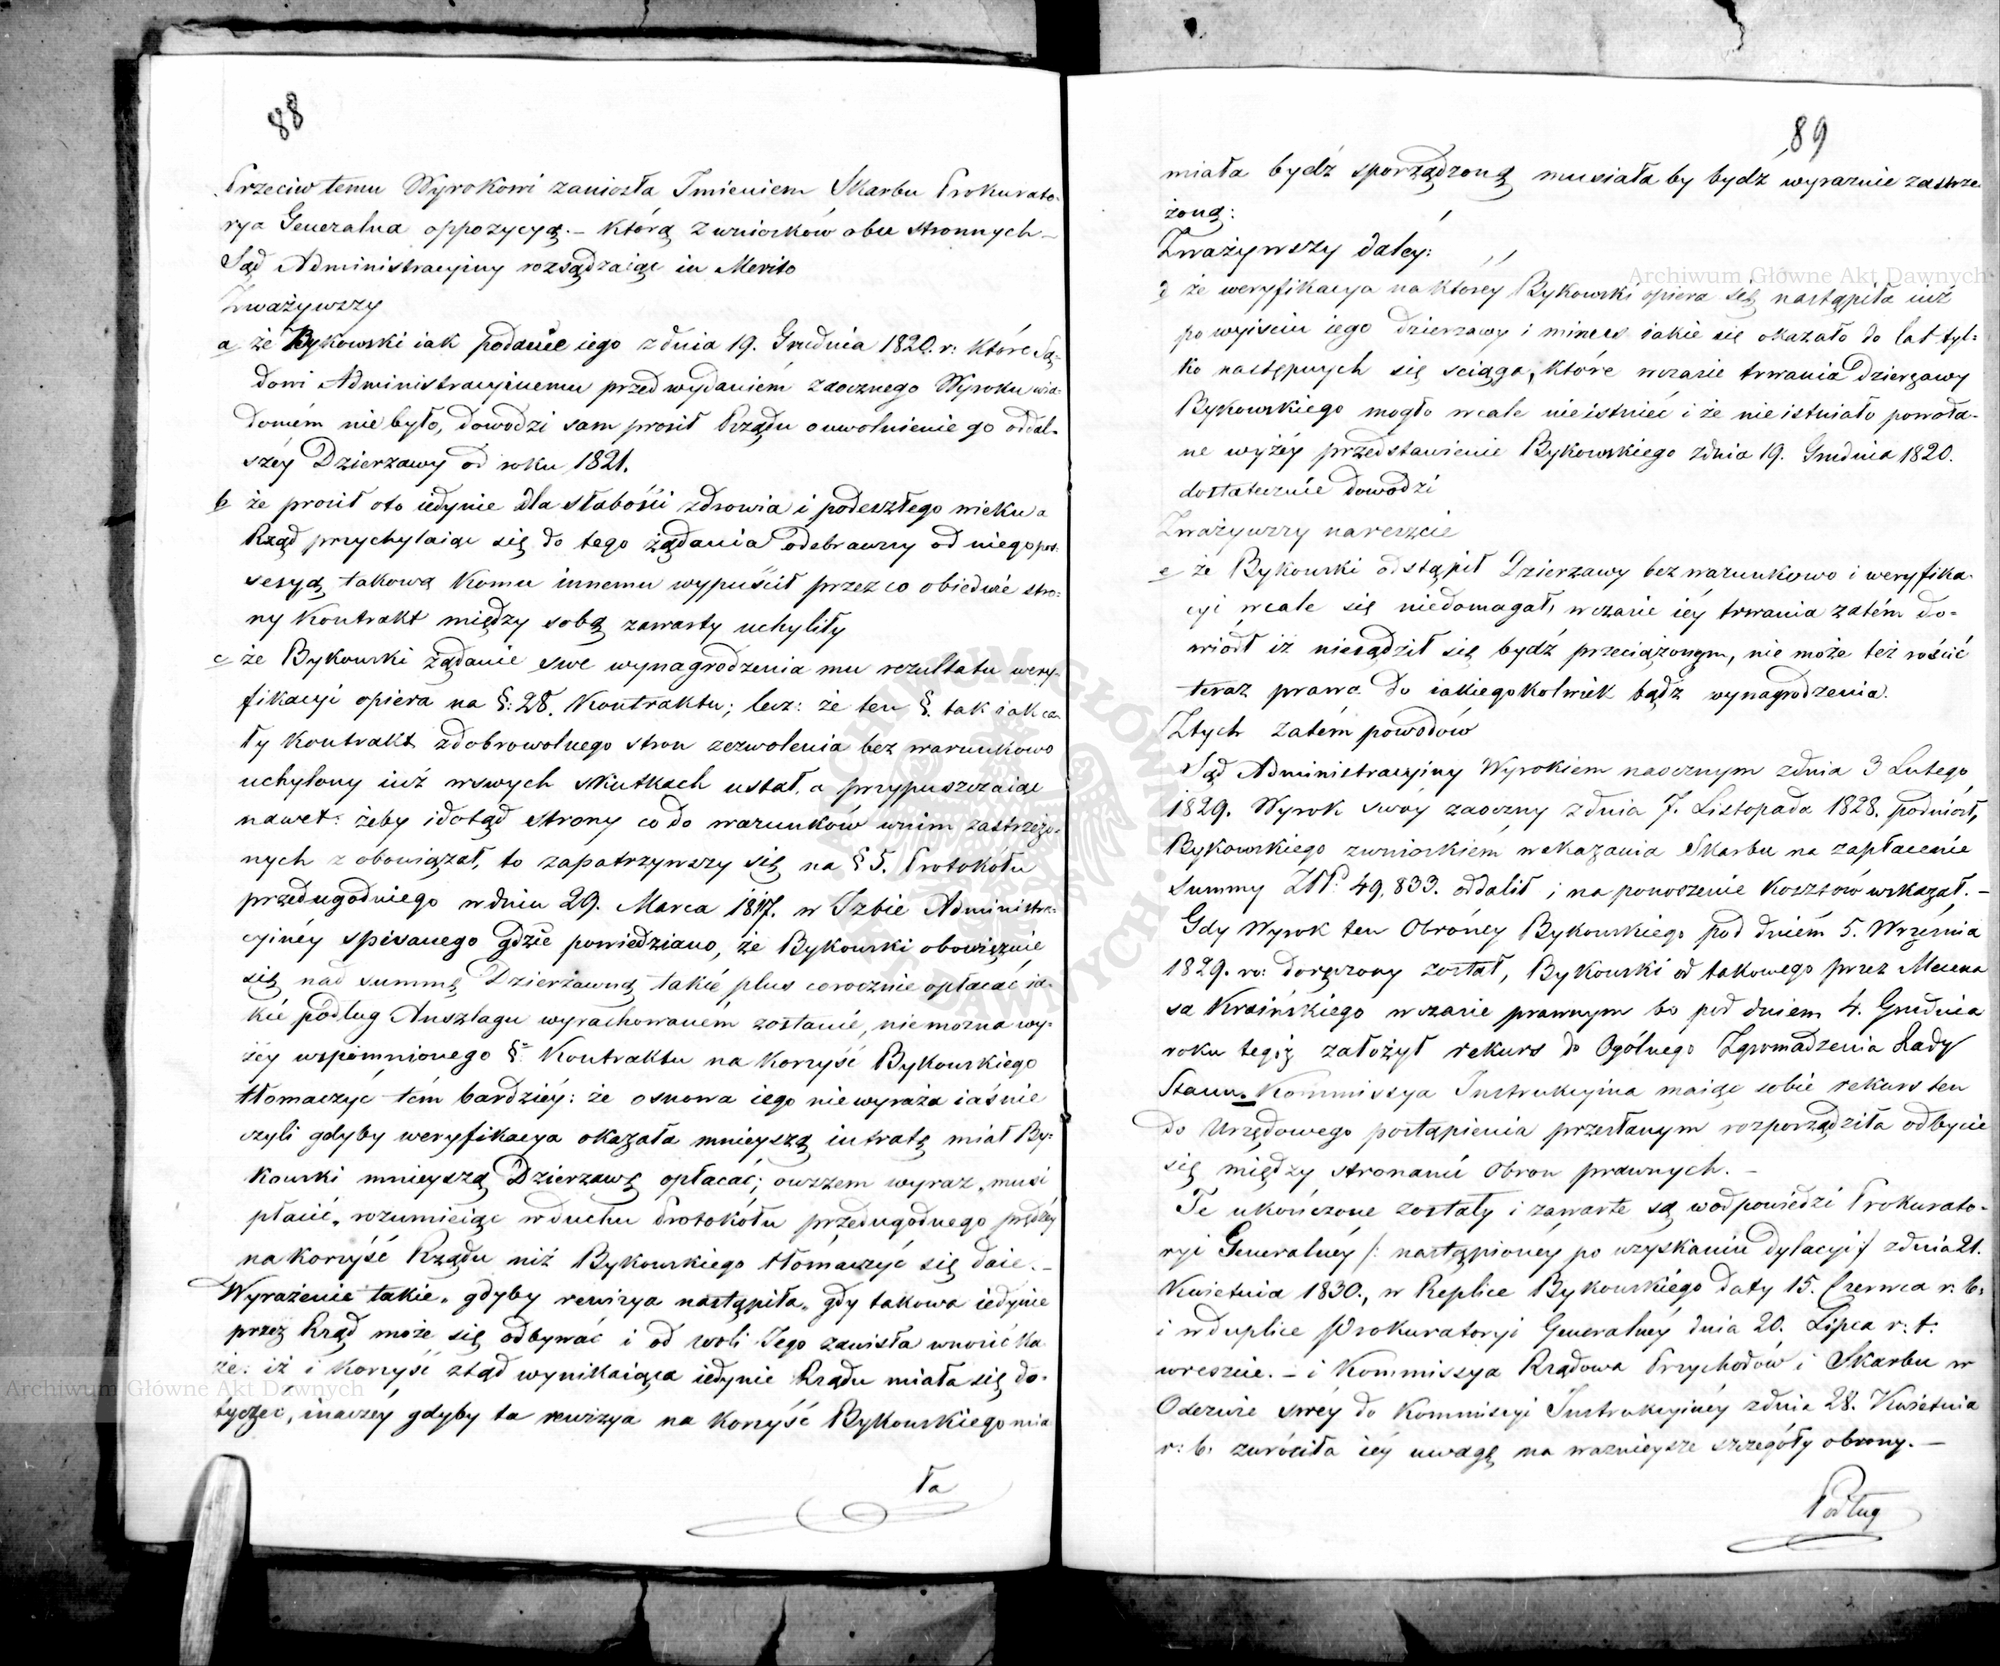 88
Przeciw temu Wyrokowi zaniosła Imieniem Skarbu Prokurato-
rya Generalna oppozycyą. – którą z wniosków obu stronnych –
Sąd Administracyiny rozsądzaiąc in Merito
Zważywszy
a że Bykowski iak podanie iego z dnia 19. Grudnia 1820. r: które Są-
dowi Administracyinemu przed wydaniem zaocznego Wyroku wia-
domém nie było, dowodzi sam prosił Rządu o uwolnienie go od dal-
széy Dzierzawy od roku 1821.
b że prosił oto iedynie dla słabości zdrowia i podeszłego wieku a
Rząd przychylaiąc się do tego żądania odebrawszy od niego pos-
sesyą takową komu innemu wypuścił przez co obiedwie stro-
ny Kontrakt między sobą zawarty uchyliły
c że Bykowski żądanie swe wynagrodzenia mu rezultatu wery-
fikacyi opiera na §: 28. Kontraktu; lecz: że ten §. tak iak ca-
ły Kontrakt z dobrowolnego stron zezwolenia bez warunkowo
uchylony iuż w swych skutkach ustał, a przypuszczaiąc
nawet: żeby i dotąd strony co do warunków w nim zastrzeżo-
nych zobowiązał, to zapatrzywszy się na § 5. Protokółu
przedugodniego w dniu 29. Marca 1817. w Izbie Administra-
cyinéy spisanego gdzie powiedziano, że Bykowski obowiązuie
się nad summę Dzierzawną takie plus corocznie opłacać ia-
kie podług Anszlagu wyrachowaném zostanie, nie mozna wy-
żéy wspomnionego §. Kontraktu na korzyść Bykowskiego
tłomaczyć tém bardziéy: że osnowa iego nie wyraża iaśnie
czyli gdyby weryfikacya okazała mnieyszą intratę miał By-
kowski mnieyszą Dzierzawę opłacać; owszem wyraz „musi
płacić„ rozumieiąc w duchu Protokółu przedugodnego prędzéy
na korzyść Rządu niż Bykowskiego tłómaczyć się daie. –
Wyrażenie takie „gdyby rewizya nastąpiła„ gdy takowa iedynie
przez Rząd może się odbywać i od woli Jego zawisła wnosić ka
że: iż i korzyść ztąd wynikaiąca iedynie Rządu miała się do-
tyczéć, inaczéy gdyby ta rewizya na korzyść Bykowskiego mia
ła
89
miała bydź sporządzoną musiała by bydź wyraznie zastrze-
żoną:
Zważywszy daléy:
d że weryfikacya na któréy Bykowski opiera się nastąpiła iuż
po wyiściu iego dzierzawy i minus iakie się okazało do lat tyl-
ko następnych się ściąga, które w czasie trwania Dzierzawy
Bykowskiego mogło wcale nieistnieć i że nie istniało powoła-
ne wyżéy przedstawienie Bykowskiego z dnia 19. Grudnia 1820.
dostatecznie dowodzi
Zważywszy nareszcie
e że Bykowski odstąpił Dzierzawy bez warunkowo i weryfika-
cyi wcale się niedomagał, w czasie iéy trwania zatém do-
wiódł iż nie sądził się bydź przeciążonym, nie może też rościć
teraz prawa do iakiegokolwiek bądź wynagrodzenia.
Z tych zatém powodów
Sąd Administracyiny Wyrokiem naocznym z dnia 3 Lutego
1829. Wyrok swóy zaoczny z dnia 7. Listopada 1828. podniósł,
Bykowskiego z wnioskiem wskazania Skarbu na zapłacenie
Summy Złł. 49,833. oddalił i na ponoszenie kosztów wskazał. –
Gdy Wyrok ten Obrońcy Bykowskiego pod dniém 5. Września
1829. ro: doręczony został, Bykowski od takowego przez Mecena
sa Kraińskiego w czasie prawnym bo pod dniem 4. Grudnia
roku tegoż założył rekurs do Ogólnego Zgromadzenia Rady
Stanu. Kommissya Instrukcyina maiąc sobie rekurs ten
do Urzędowego postąpienia przesłanym rozporządziła odbycie
się między stronami Obron prawnych. –
Te ukończone zostały i zawarte są w odpowiedzi Prokurato-
ryi Generalnéy /: nastąpionéy po uzyskaniu dylacyi :/ z dnia 21.
Kwietnia 1830., w Replice Bykowskiego daty 15. Czerwca r. b.
i w duplice Prokuratoryi Generalnéy dnia 20. Lipca r. t.
wreszcie. – i Kommissya Rządowa Przychodów i Skarbu w
Odezwie swéy do Kommissyi Instrukcyinéy z dnia 28. Kwietnia
r. b. zwróciła iéy uwagę na waznieysze szczegóły obrony. –
Podług
Archiwum Główne Akt Dawnych
Archiwum Główne Akt Dawnych
ARCHIWUM GŁÓWNE AKT DAWNYCH